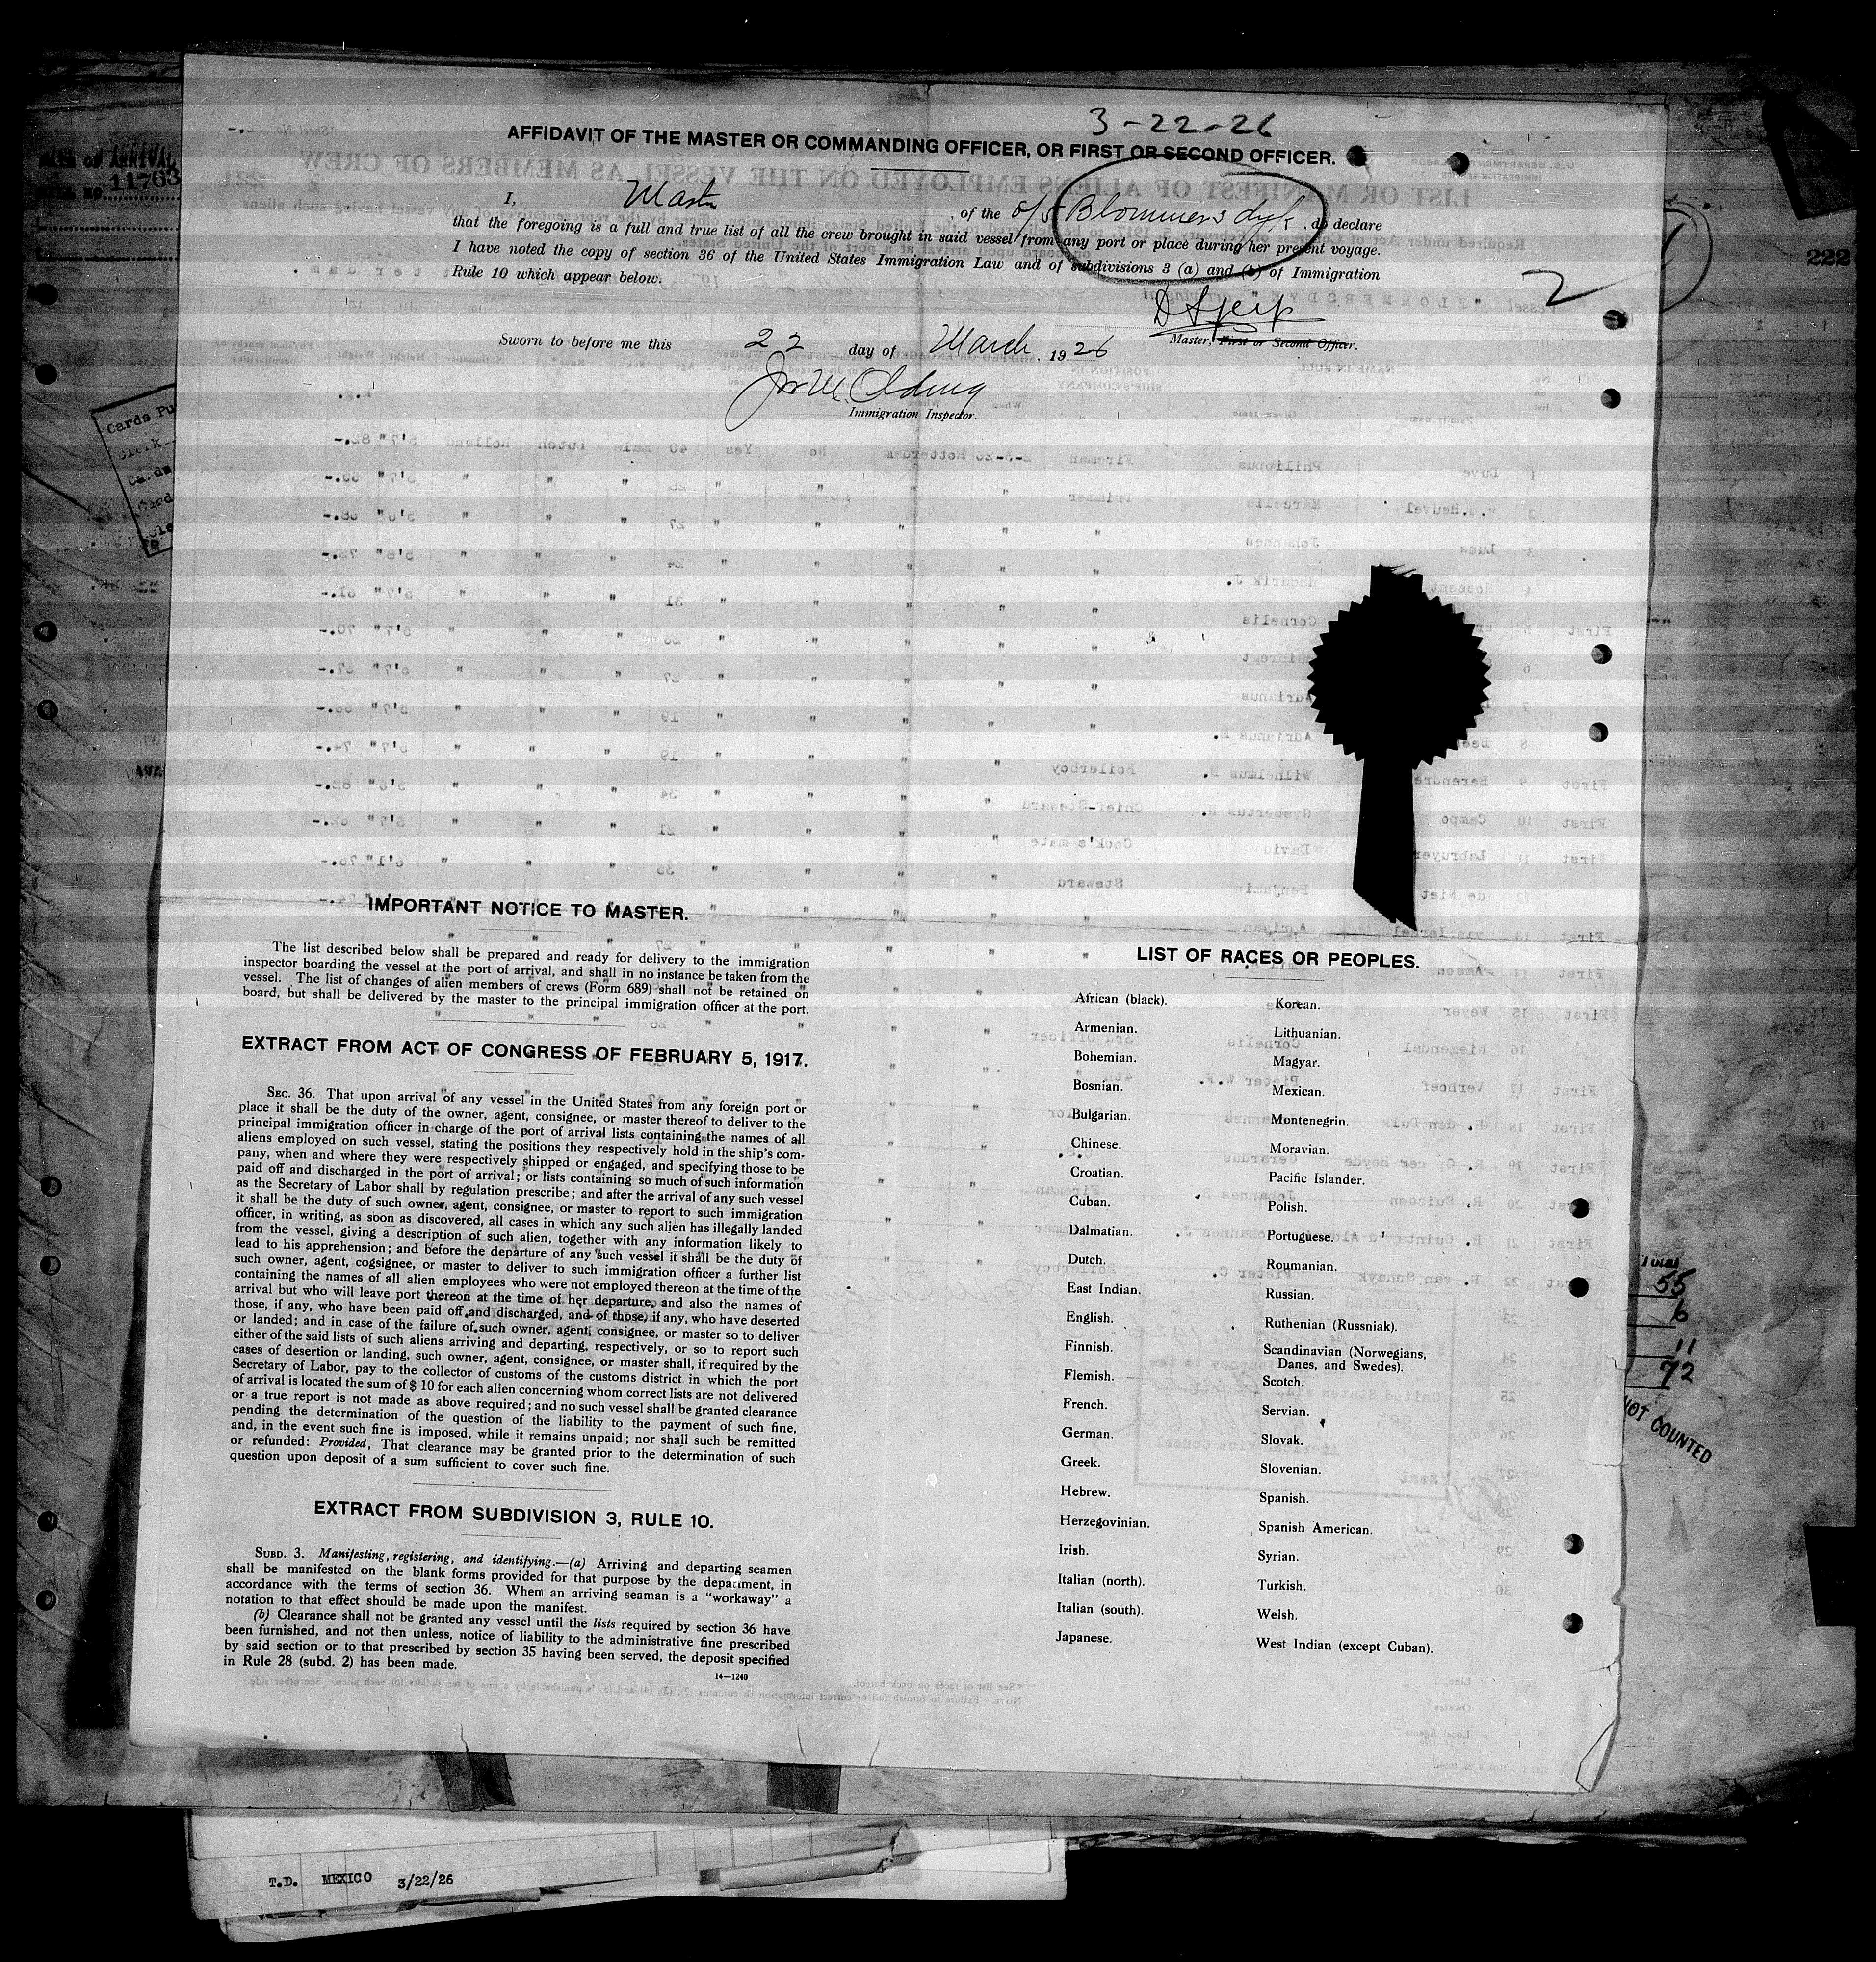 3-22-26
AFFIDAVIT OF THE MASTER OR COMMANDING OFFICER, OR FIRST OR SECOND OFFICER.
I, Master, of the S/S Blommersdyk, do declare
that the foregoing is a full and true list of all the crew brought in said vessel from any port or place during her present voyage.
I have noted the copy of section 36 of the United States Immigration Law and of subdivisions 3 (a) and (b) of Immigration
Rule 10 which appear below.
2
Master, First or Second Officer.
Sworn to before me this 22 day of March, 1926
Immigration Inspector.
IMPORTANT NOTICE TO MASTER.
The list described below shall be prepared and ready for delivery to the immigration
inspector boarding the vessel at the port of arrival, and shall in no instance be taken from the
vessel. The list of changes of alien members of crews (Form 689) shall not be retained on
board, but shall be delivered by the master to the principal immigration officer at the port.
EXTRACT FROM ACT OF CONGRESS OF FEBRUARY 5, 1917.
SEC. 36. That upon arrival of any vessel in the United States from any foreign port or
place it shall be the duty of the owner, agent, consignee, or master thereof to deliver to the
principal immigration officer in charge of the port of arrival lists containing the names of all
aliens employed on such vessel, stating the positions they respectively hold in the ship's com-
pany, when and where they were respectively shipped or engaged, and specifying those to be
paid off and discharged in the port of arrival; or lists containing so much of such information
as the Secretary of Labor shall by regulation prescribe; and after the arrival of any such vessel
it shall be the duty of such owner, agent, consignee, or master to report to such immigration
officer, in writing, as soon as discovered, all cases in which any such alien has illegally landed
from the vessel, giving a description of such alien, together with any information likely to
lead to his apprehension; and before the departure of any such vessel it shall be the duty of
such owner, agent, cogsignee, or master to deliver to such immigration officer a further list
containing the names of all alien employees who were not employed thereon at the time of the
arrival but who will leave port thereon at the time of her departure, and also the names of
those, if any, who have been paid off and discharged, and of those, if any, who have deserted
or landed; and in case of the failure of such owner, agent, consignee, or master so to deliver
either of the said lists of such aliens arriving and departing, respectively, or so to report such
cases of desertion or landing, such owner, agent, consignee, or master shall, if required by the
Secretary of Labor, pay to the collector of customs of the customs district in which the port
of arrival is located the sum of $ 10 for each alien concerning whom correct lists are not delivered
or a true report is not made as above required; and no such vessel shall be granted clearance
pending the determination of the question of the liability to the payment of such fine,
and, in the event such fine is imposed, while it remains unpaid; nor shall such be remitted
or refunded: Provided, That clearance may be granted prior to the determination of such
question upon deposit of a sum sufficient to cover such fine.
EXTRACT FROM SUBDIVISION 3, RULE 10.
SUBD. 3. Manifesting, registering, and identifying.—(a) Arriving and departing seamen
shall be manifested on the blank forms provided for that purpose by the department, in
accordance with the terms of section 36. When an arriving seaman is a "workaway" a
notation to that effect should be made upon the manifest.
(b) Clearance shall not be granted any vessel until the lists required by section 36 have
been furnished, and not then unless, notice of liability to the administrative fine prescribed
by said section or to that prescribed by section 35 having been served, the deposit specified
in Rule 28 (subd. 2) has been made.
14—1240
LIST OF RACES OR PEOPLES.
African (black).
Armenian.
Bohemian.
Bosnian.
Bulgarian.
Chinese.
Croatian.
Cuban.
Dalmatian.
Dutch.
East Indian.
English.
Finnish.
Flemish.
French.
German.
Greek.
Hebrew.
Herzegovinian.
Irish.
Italian (north).
Italian (south).
Japanese.
Korean.
Lithuanian.
Magyar.
Mexican.
Montenegrin.
Moravian.
Pacific Islander.
Polish.
Portuguese.
Roumanian.
Russian.
Ruthenian (Russniak).
Scandinavian (Norwegians,
Danes, and Swedes).
Scotch.
Servian.
Slovak.
Slovenian.
Spanish.
Spanish American.
Syrian.
Turkish.
Welsh.
West Indian (except Cuban).
11763
222
Total
55
6
11
72
NOT COUNTED
T.D. MEXICO 3/22/26